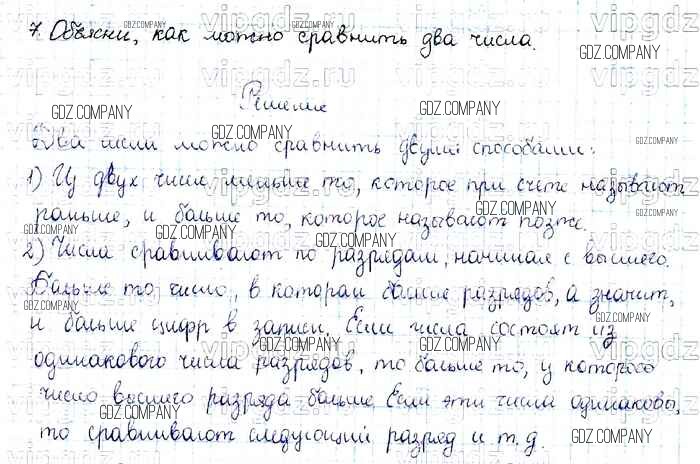 7. Объясни, как можно сравнить два числа.
Решение
Два числа можно сравнить двумя способами:
1) Из двух чисел меньше то, которое при счете называют
раньше, и больше то, которое называют позже.
2) Числа сравнивают по разрядам, начиная с высшего.
Больше то число, в котором больше разрядов, а значит,
и больше цифр в записи. Если числа состоят из
одинакового числа разрядов, то больше то, у которого
число высшего разряда больше. Если эти числа одинаковы,
то сравнивают следующий разряд и т.д.